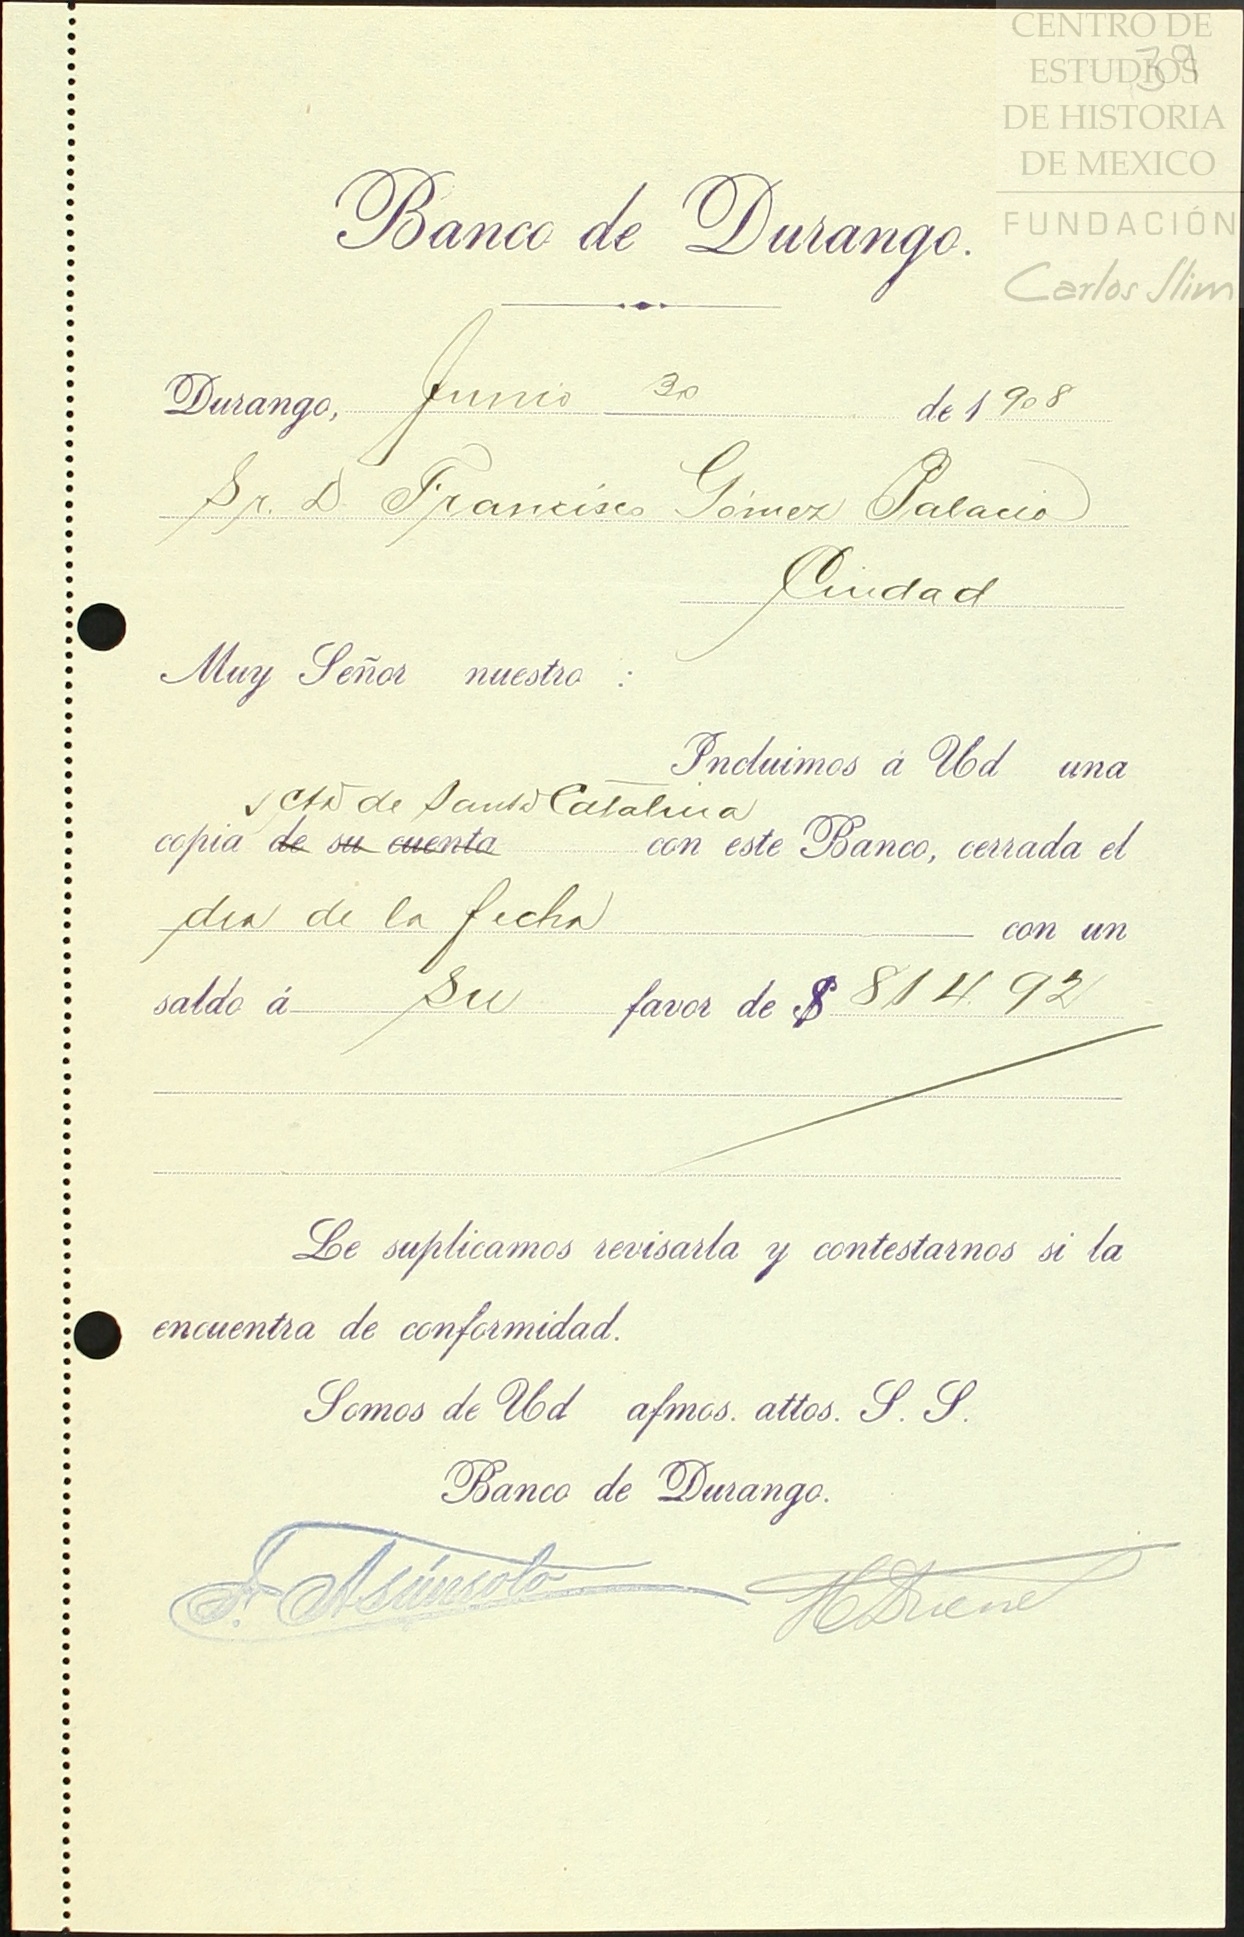 CENTRO DE
ESTUDIOS
DE HISTORIA
DE MEXICO
FUNDACIÓN
Carlos Slim
39
Banco de Durango.
Durango, Junio 30 de 1908
Sr. D. Francisco Gómez Palacio
Ciudad
Muy Señor nuestro :
Incluimos á Ud una
cta de Santa Catalina
copia de su cuenta con este Banco, cerrada el
dia de la fecha con un
saldo á su favor de $ 814 92
Le suplicamos revisarla y contestarnos si la
encuentra de conformidad.
Somos de Ud afmos. attos. S. S.
Banco de Durango.
F. Asúnsolo